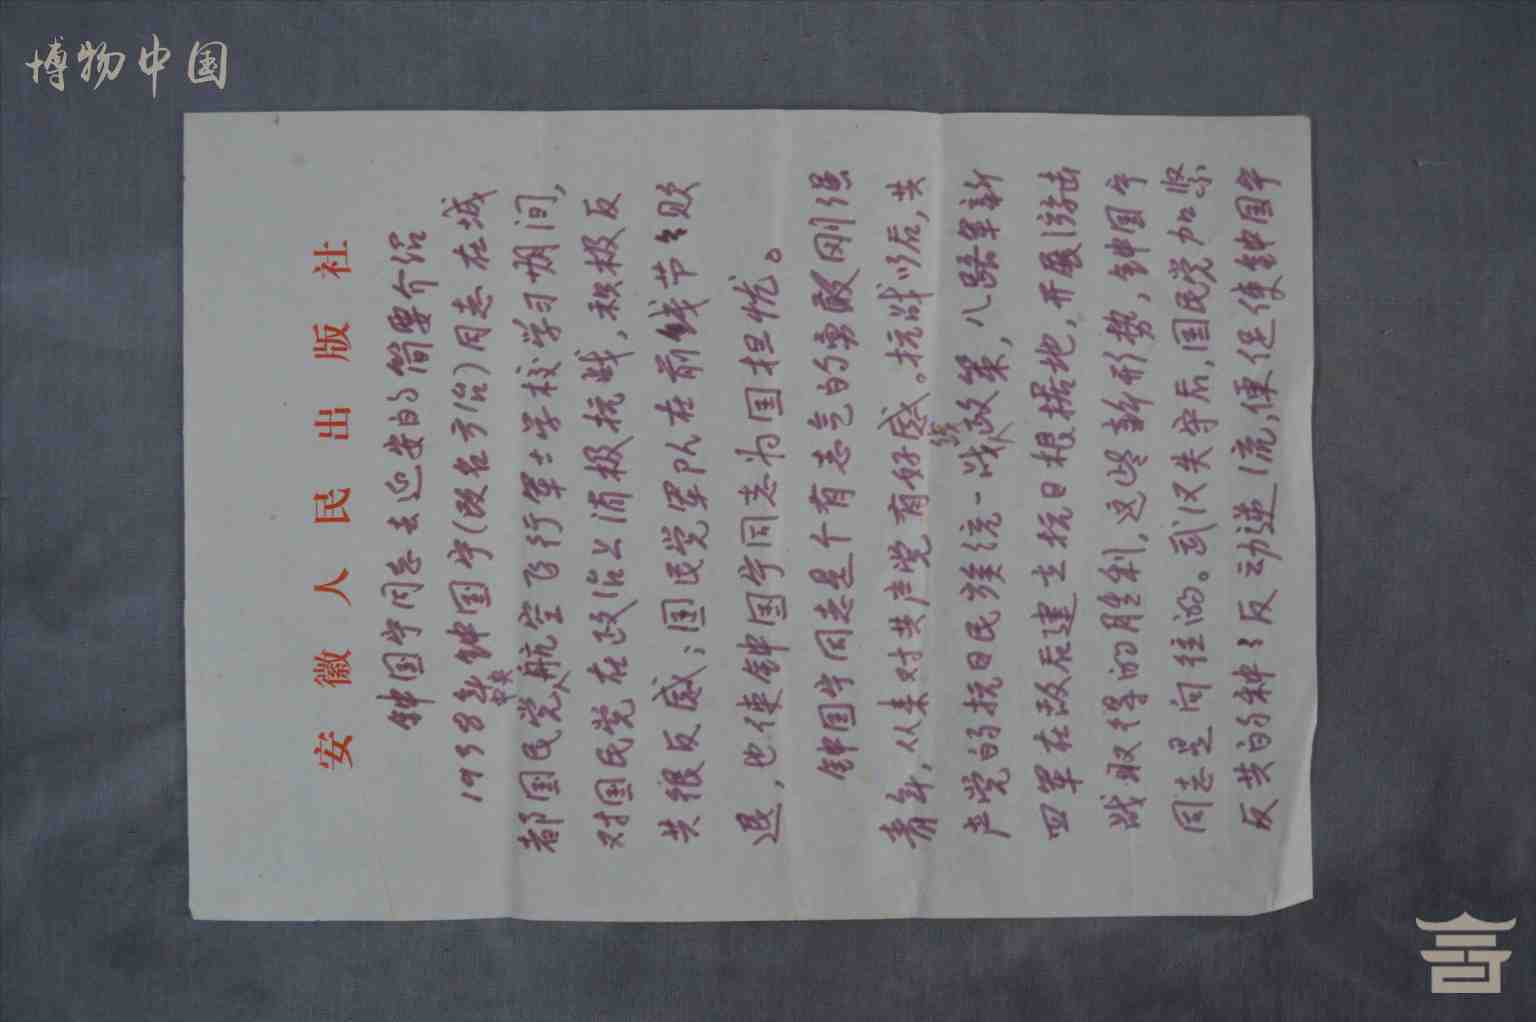 博物中国
安徽人民出版社
钟国宇同志去延安的简要介绍
1938年钟国宇(改名方治)同志在成
都国民党中央航空飞行军士学校学习期间,
对国民党在政治上消极抗战,积极反
共很反感;国民党军队在前线节々败
退,也使钟国宇同志为国担忧。
钟国宇同志是个有志气的勇敢刚强
青年,从来对共产党有好感。抗战以后,共
产党的抗日民族统一战线政策,八路军新
四军在敌后建立抗日根据地,开展游击
战取得的胜利,这些新形势,钟国宇
同志是向往的。武汉失守后,国民党加紧
反共的种々反动逆流,便促使钟国宇